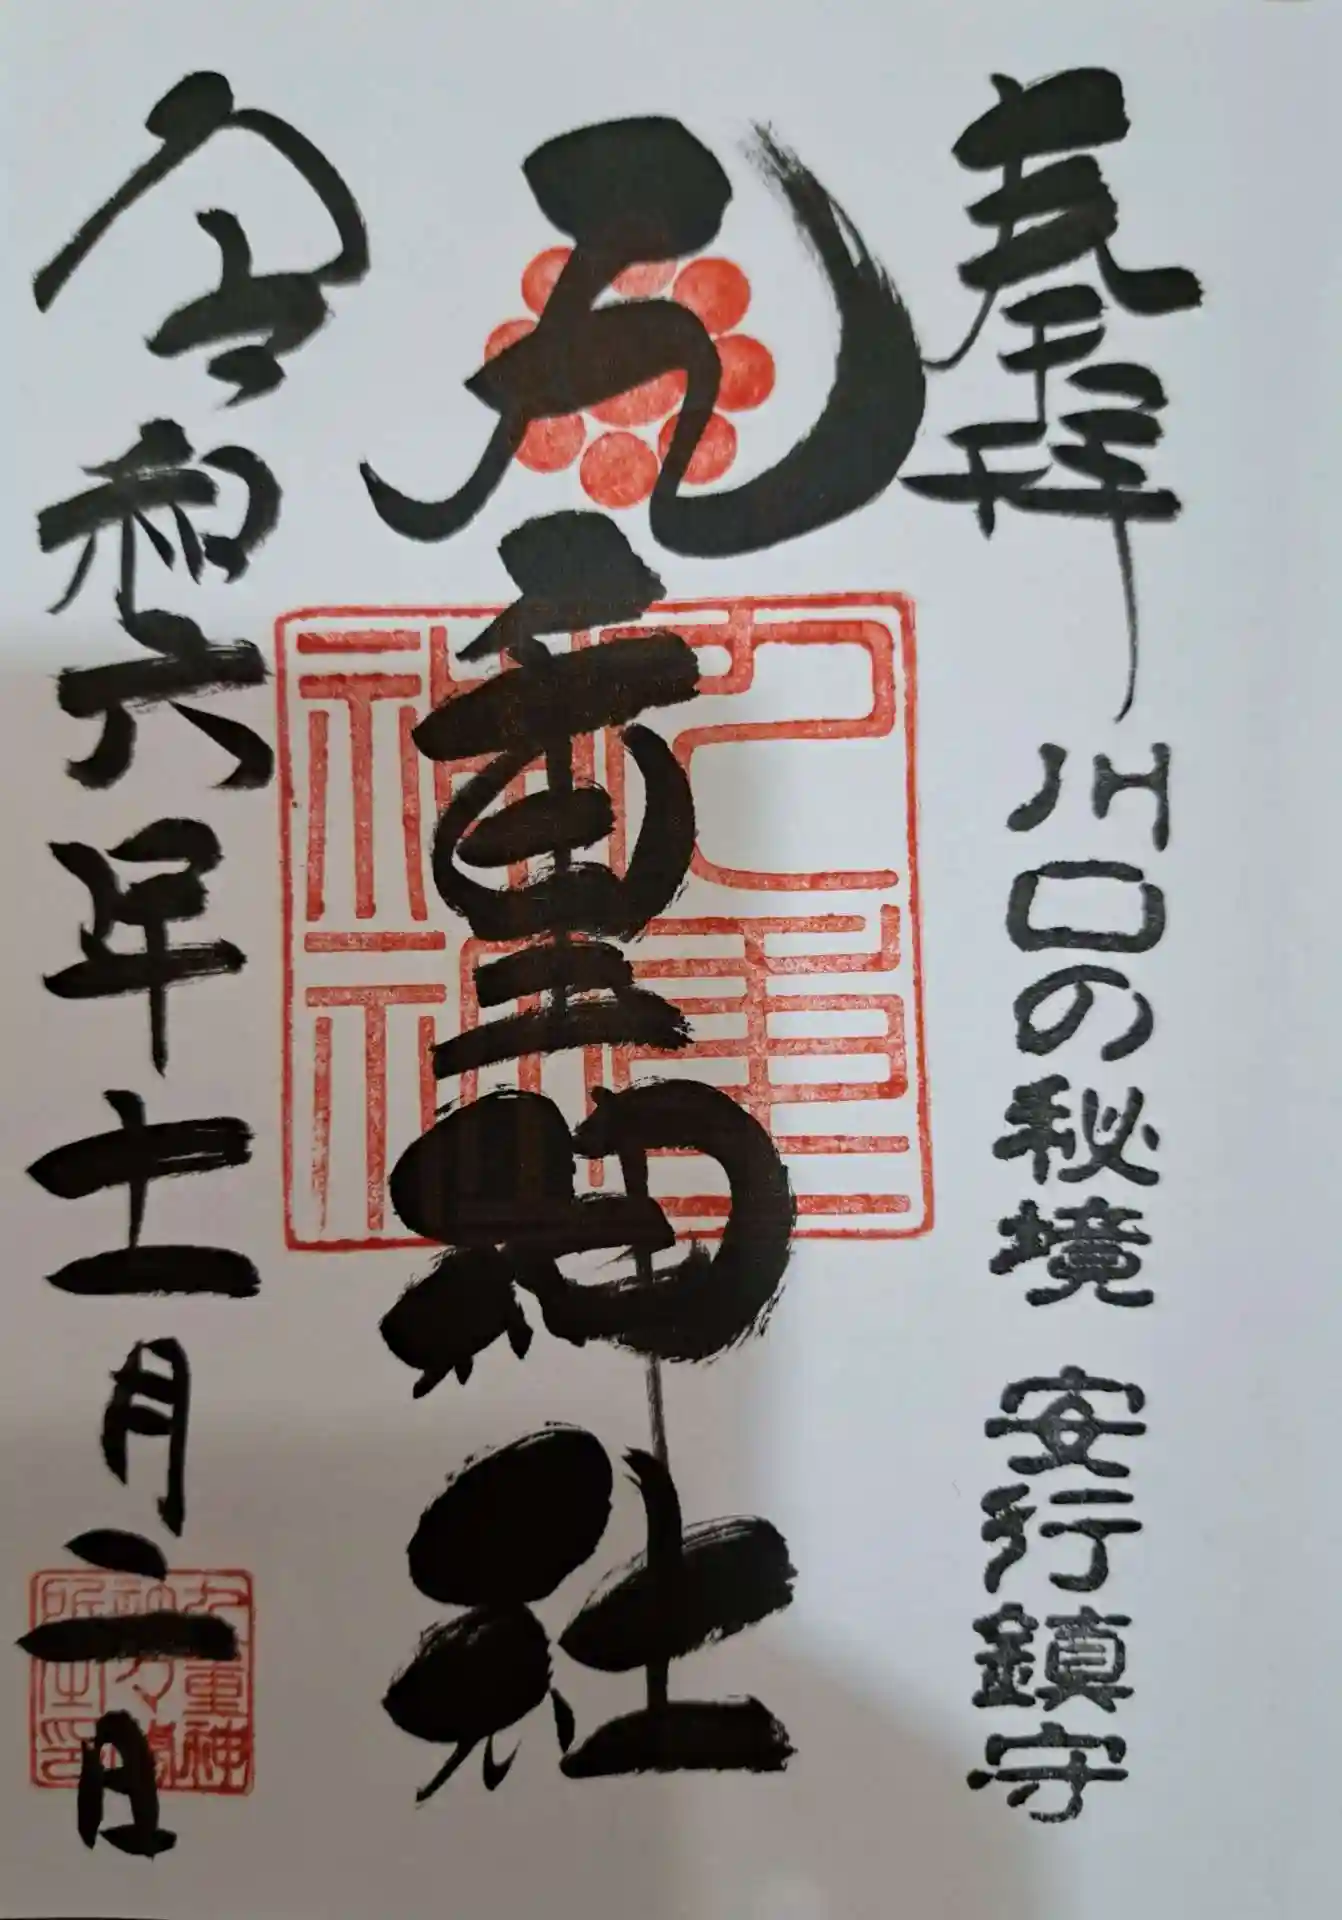 奉拝
川口の秘境 安行鎮守
九重神社
九重神社
令和六年十一月二日
九重神
社々務
所之印